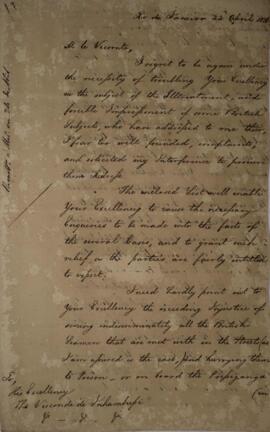 Rio de Janeiro 22 April 18
M. le Viconte,
I regret to be again under
the necessity of troubling Your Excellency
on the subject of the Illtreatment, and
forcible Impressment of some British
Subjects, who have addressed to me their,
I fear too well founded, complaints,
and solicited my Interference to procure
them Redress.
The inclosed List will enable
Your Excellency to cause the necessary
Enquiries to be made into the facts of
the several Cases, and to grant such
relief as the parties are fairly entitled
to expect.
I need hardly point out to
Your Excellency the exceeding Injustice of
seizing indiscriminately all the British
Seamen that are met with in the Streets, as
I am assured is the case, and hurrying them
to Prison, or on board the Pirapiranga
To,
His Excellency
The Visconde de Inhambupe